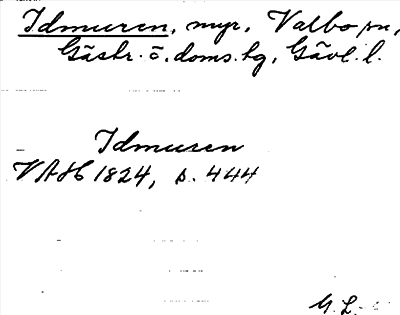 Idmuren, myr, Valbo sn,
Gästr. ö. doms. tg, Gävl. l.
Idmuren
VAH 1824, s. 444
M. L.